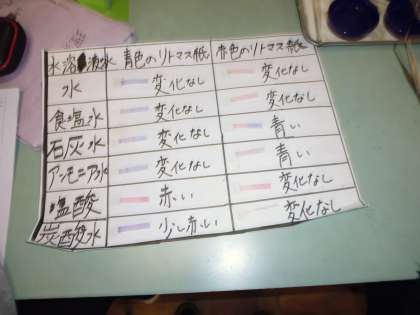 水溶液水 青色のリトマス紙 赤色のリトマス紙
水 変化なし 変化なし
食塩水 変化なし 変化なし
石灰水 変化なし 青い
アンモニア水 変化なし 青い
塩酸 赤い 変化なし
炭酸水 少し赤い 変化なし